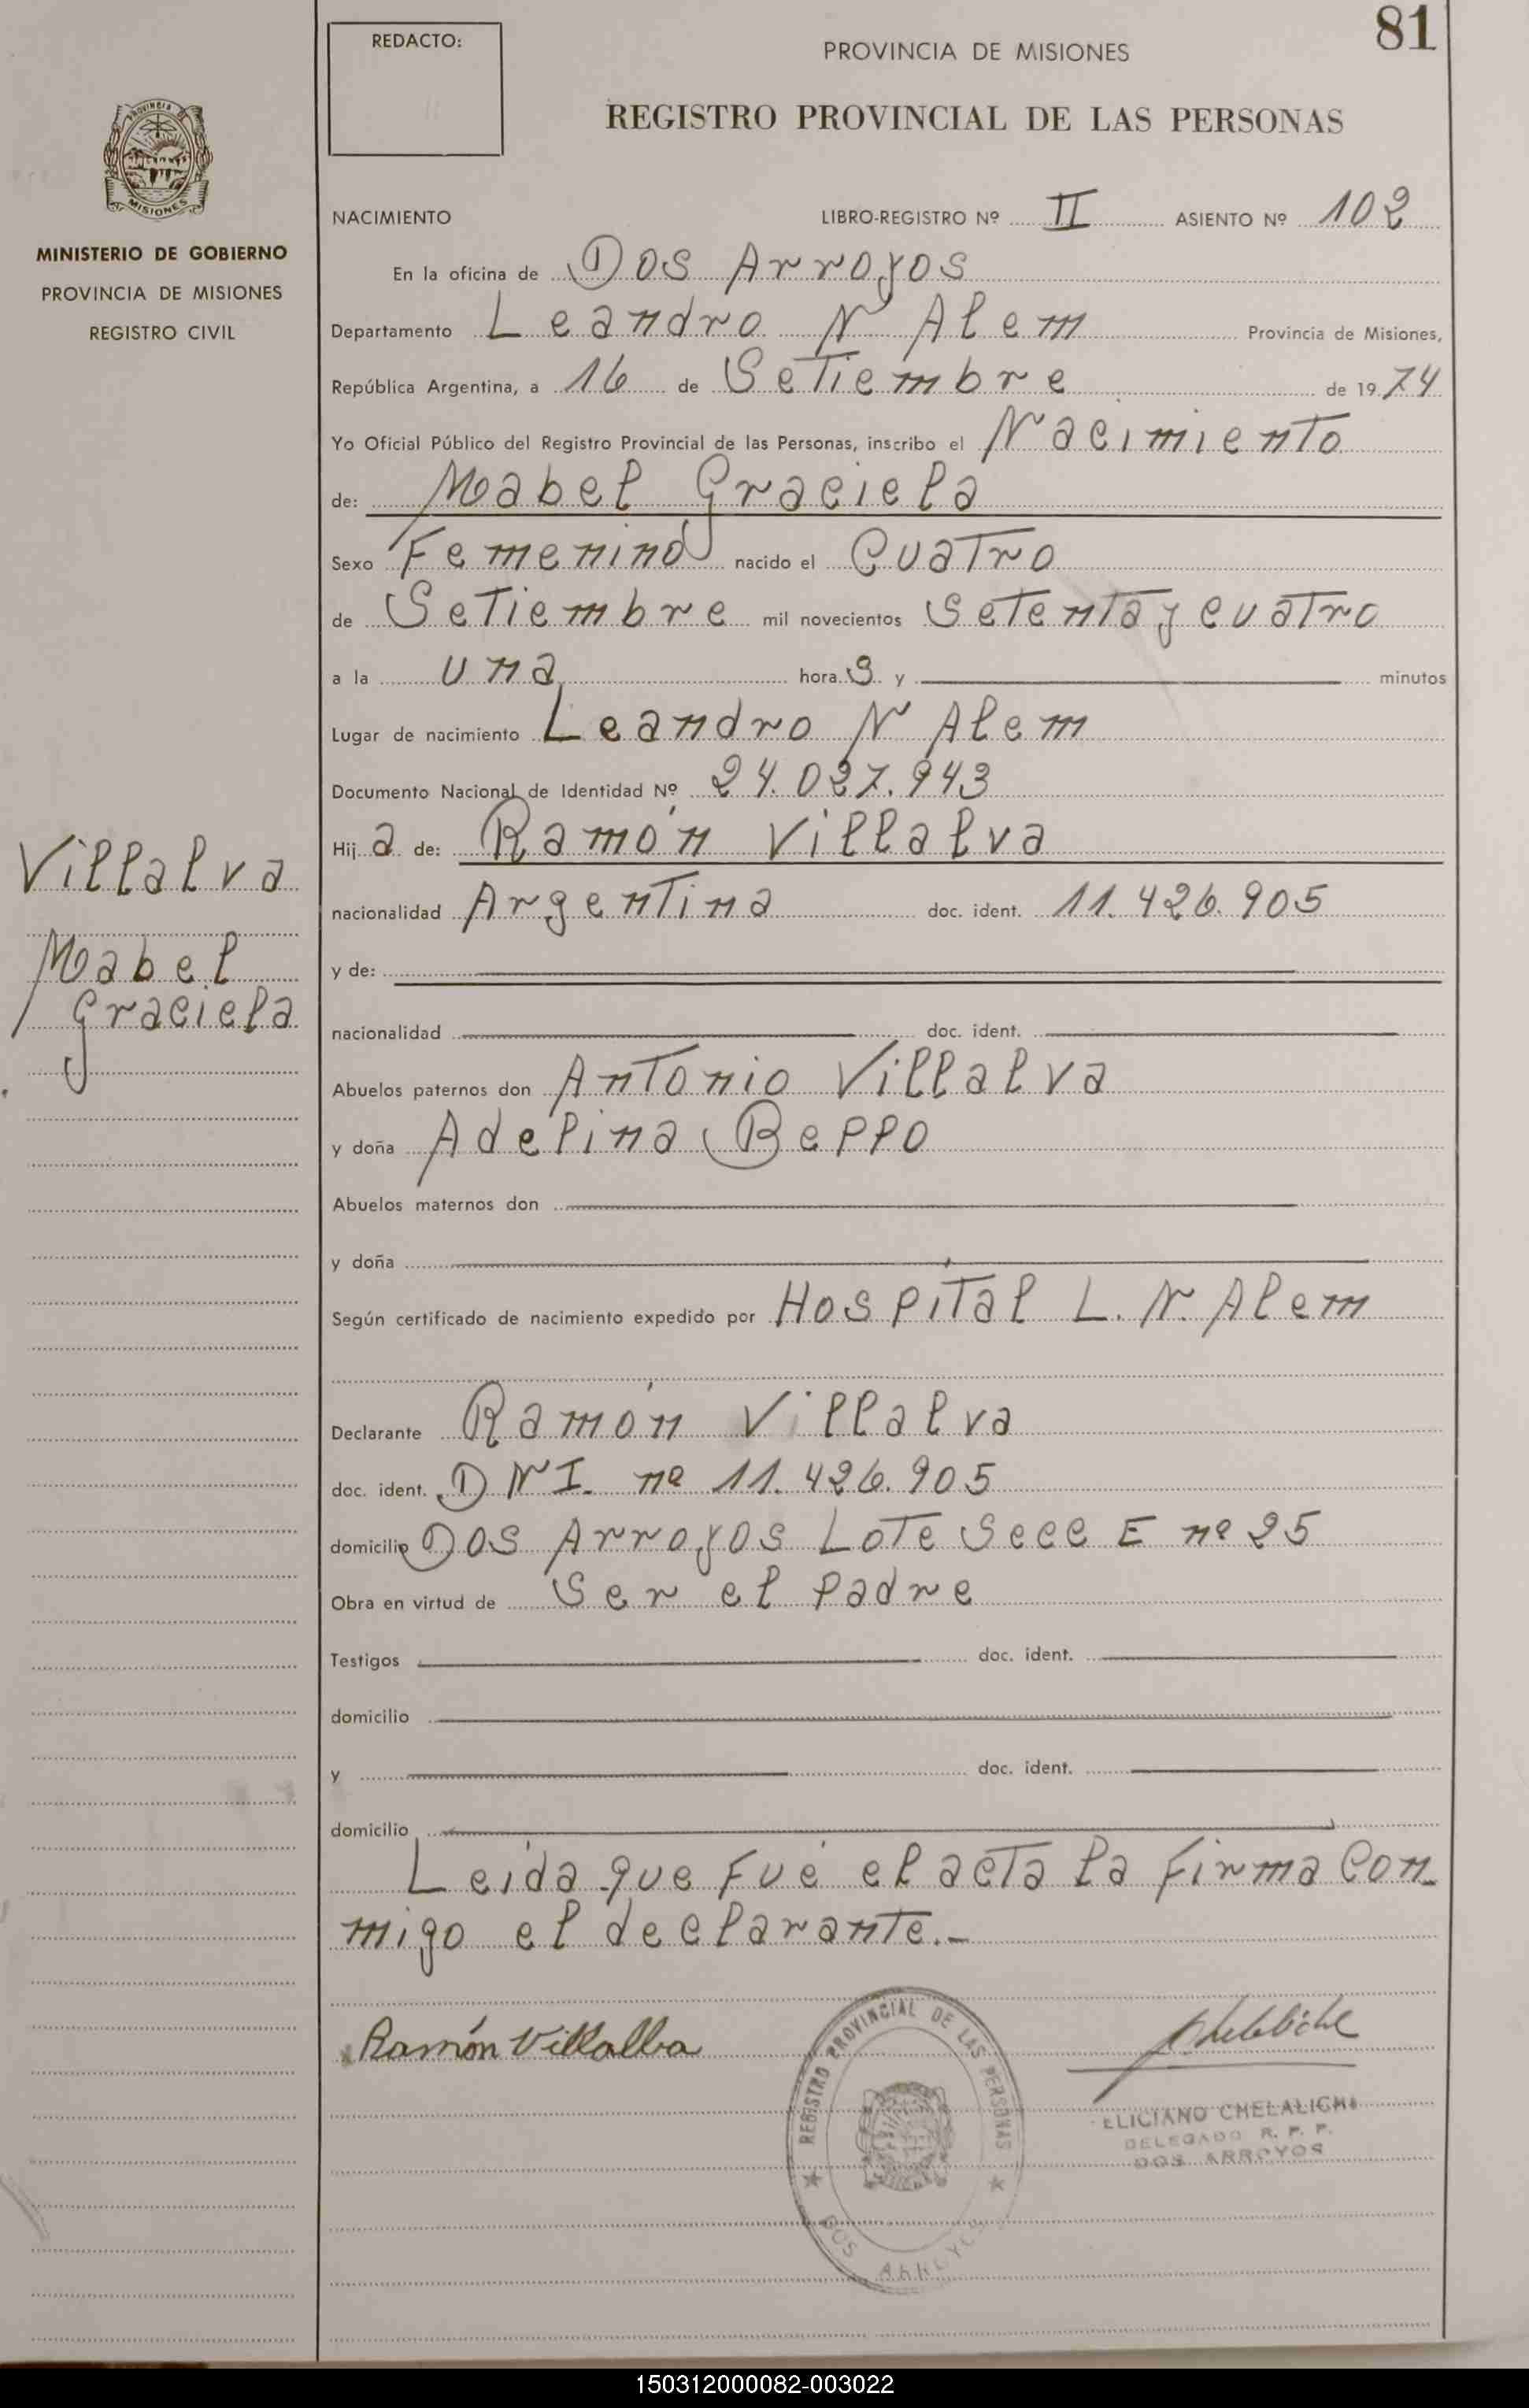 81
REDACTO:
PROVINCIA DE MISIONES
REGISTRO PROVINCIAL DE LAS PERSONAS
PROVINCIA
MISIONES
MINISTERIO DE GOBIERNO
PROVINCIA DE MISIONES
REGISTRO CIVIL
NACIMIENTO LIBRO-REGISTRO Nº II ASIENTO Nº 102
En la oficina de Dos Arroyos
Departamento Leandro N Alem Provincia de Misiones,
República Argentina, a 16 de Setiembre de 1974
Yo Oficial Público del Registro Provincial de las Personas, inscribo el Nacimiento
de: Mabel Graciela
Sexo Femenino nacido el Cuatro
de Setiembre mil novecientos setenta y cuatro
a la una hora S y minutos
Lugar de nacimiento Leandro N Alem
Documento Nacional de Identidad Nº 24.027.943
Hija de: Ramón Villalva
nacionalidad Argentina doc. ident. 11.426.905
y de:
nacionalidad doc. ident.
Abuelos paternos don Antonio Villalva
y doña Adelina Bello
Abuelos maternos don
y doña
Según certificado de nacimiento expedido por Hospital L. N. Alem
Declarante Ramón Villalva
doc. ident. D N I. nº 11.426.905
domicilio Dos Arroyos Lote Secc E nº 25
Obra en virtud de ser el padre
Testigos doc. ident.
domicilio
y doc. ident.
domicilio
Leida que fué el acta la firma con
migo el declarante.-
Villalva
Mabel
Graciela
Ramón Villalba
REGISTRO PROVINCIAL DE LAS PERSONAS
DOS ARROYOS
ELICIANO CHELALICHE
DELEGADO R. P. P.
DOS ARROYOS
150312000082-003022